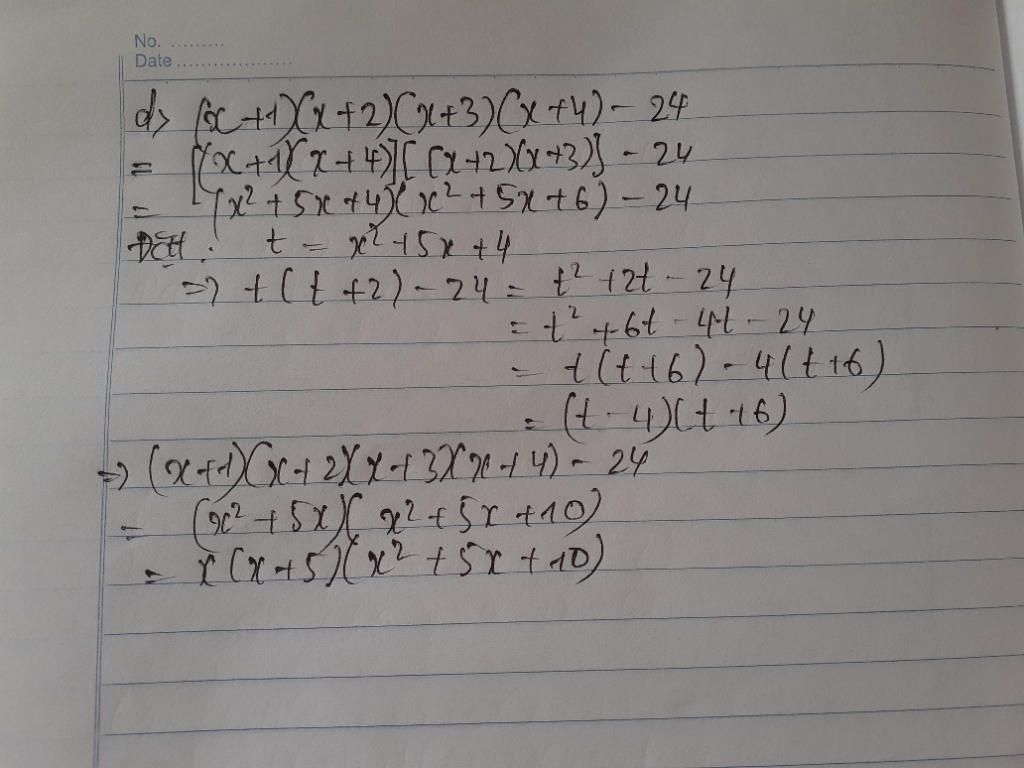 No. .........
Date ...................
d> (x+1)(x+2)(x+3)(x+4) - 24
= [(x+1)(x+4)][(x+2)(x+3)] - 24
= (x² + 5x + 4)(x² + 5x + 6) - 24
Đặt : t = x² + 5x + 4
=> t(t+2) - 24 = t² + 2t - 24
= t² + 6t - 4t - 24
= t(t+6) - 4(t+6)
= (t - 4)(t+6)
=> (x+1)(x+2)(x+3)(x+4) - 24
= (x² + 5x)(x² + 5x + 10)
= x(x+5)(x² + 5x + 10)